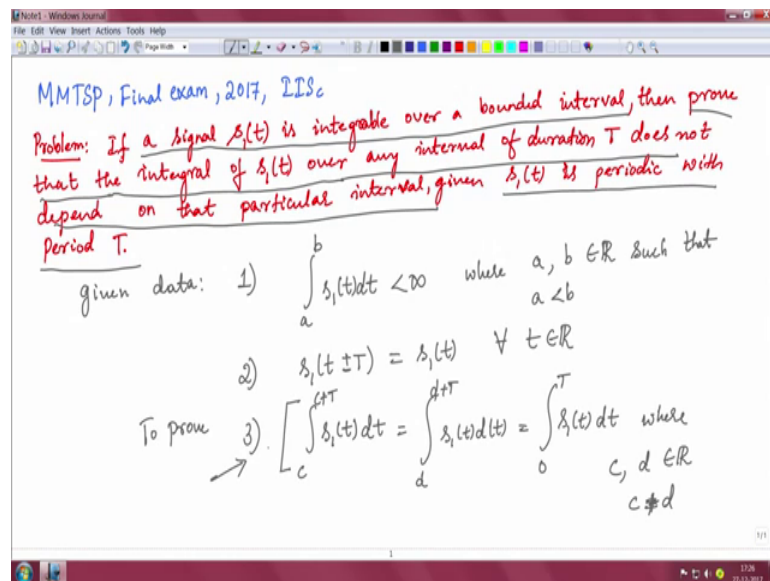 Note1 - Windows Journal
File Edit View Insert Actions Tools Help
Page Width
MMTSP, Final exam, 2017, IISc
Problem: If a signal s₁(t) is integrable over a bounded interval, then prove
that the integral of s₁(t) over any interval of duration T does not
depend on that particular interval, given s₁(t) is periodic with
Period T.
given data: 1) ∫_a^b s₁(t)dt < ∞ where a, b ∈ ℝ such that
a < b
2) s₁(t ± T) = s₁(t) ∀ t ∈ ℝ
To prove 3). [ ∫_c^{c+T} s₁(t) dt = ∫_d^{d+T} s₁(t)d(t) = ∫_0^T s₁(t) dt where
c, d ∈ ℝ
c ≠ d
1/1
1
17:26
27-12-2017